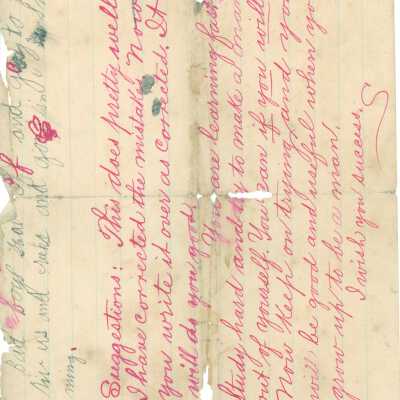 But boys out to
us and cuss and go
ming.
Suggestions: This does pretty well
I have corrected the mistakes. Now
you write it over as corrected. It
will do you good
You are learning fast
Study hard and to make a man
out of yourself. You can if you will
Now keep on trying and you
will be good and useful when you
grow up to be a man.
I wish you success.